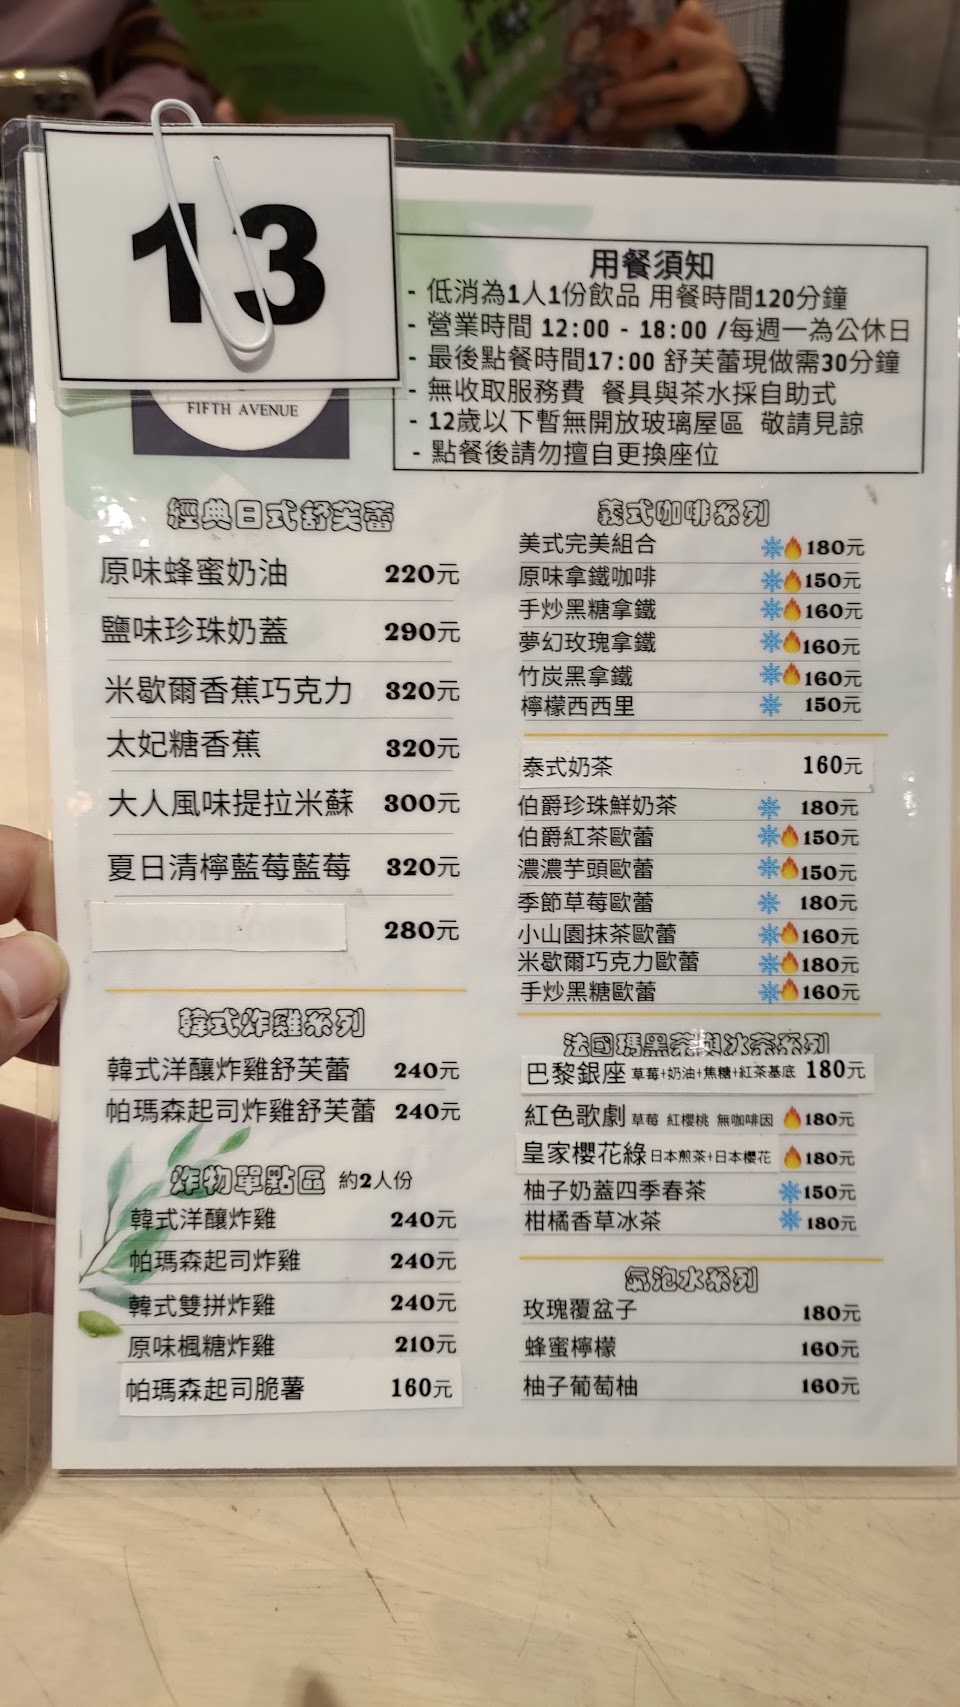 13
FIFTH AVENUE
用餐須知
- 低消為1人1份飲品 用餐時間120分鐘
- 營業時間 12:00 - 18:00 /每週一為公休日
- 最後點餐時間17:00 舒芙蕾現做需30分鐘
- 無收取服務費 餐具與茶水採自助式
- 12歲以下暫無開放玻璃屋區 敬請見諒
- 點餐後請勿擅自更換座位
經典日式舒芙蕾
原味蜂蜜奶油 220元
鹽味珍珠奶蓋 290元
米歇爾香蕉巧克力 320元
太妃糖香蕉 320元
大人風味提拉米蘇 300元
夏日清檸藍莓藍莓 320元
280元
韓式炸雞系列
韓式洋釀炸雞舒芙蕾 240元
帕瑪森起司炸雞舒芙蕾 240元
炸物單點區 約2人份
韓式洋釀炸雞 240元
帕瑪森起司炸雞 240元
韓式雙拼炸雞 240元
原味楓糖炸雞 210元
帕瑪森起司脆薯 160元
義式咖啡系列
美式完美組合 180元
原味拿鐵咖啡 150元
手炒黑糖拿鐵 160元
夢幻玫瑰拿鐵 160元
竹炭黑拿鐵 160元
檸檬西西里 150元
泰式奶茶 160元
伯爵珍珠鮮奶茶 180元
伯爵紅茶歐蕾 150元
濃濃芋頭歐蕾 150元
季節草莓歐蕾 180元
小山園抹茶歐蕾 160元
米歇爾巧克力歐蕾 180元
手炒黑糖歐蕾 160元
法國瑪黑茶與冰茶系列
巴黎銀座 草莓+奶油+焦糖+紅茶基底 180元
紅色歌劇 草莓 紅櫻桃 無咖啡因 180元
皇家櫻花綠 日本煎茶+日本櫻花 180元
柚子奶蓋四季春茶 150元
柑橘香草冰茶 180元
氣泡水系列
玫瑰覆盆子 180元
蜂蜜檸檬 160元
柚子葡萄柚 160元